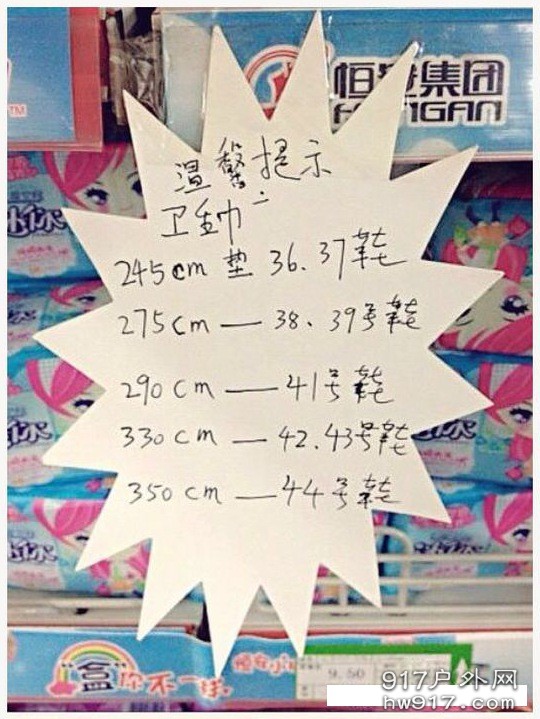 恒安集团
HENGAN
温馨提示
卫生巾
245cm 垫 36.37鞋
275cm — 38.39号鞋
290cm — 41号鞋
330cm — 42.43号鞋
350cm — 44号鞋
"盒"你不一样
9.50
917户外网
hw917.com